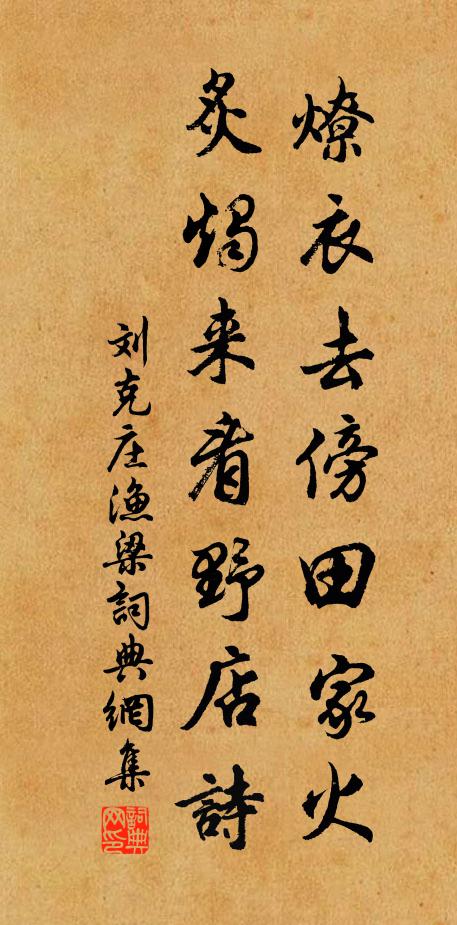 燎衣去傍田家火
炙燭来看野店詩
刘克庄漁梁詞典網集
詞典网印